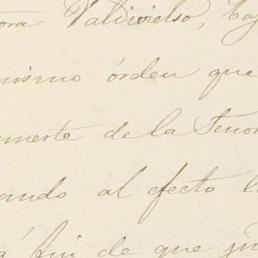 ora Valdivielso, baj
mismo órden que
muerte de la Señor
ando al efecto l
á fin de que